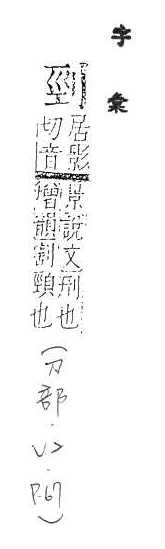 字彙
剄
居影切音景說文刑也
增韻割頸也
(刀部．V2．P.67)